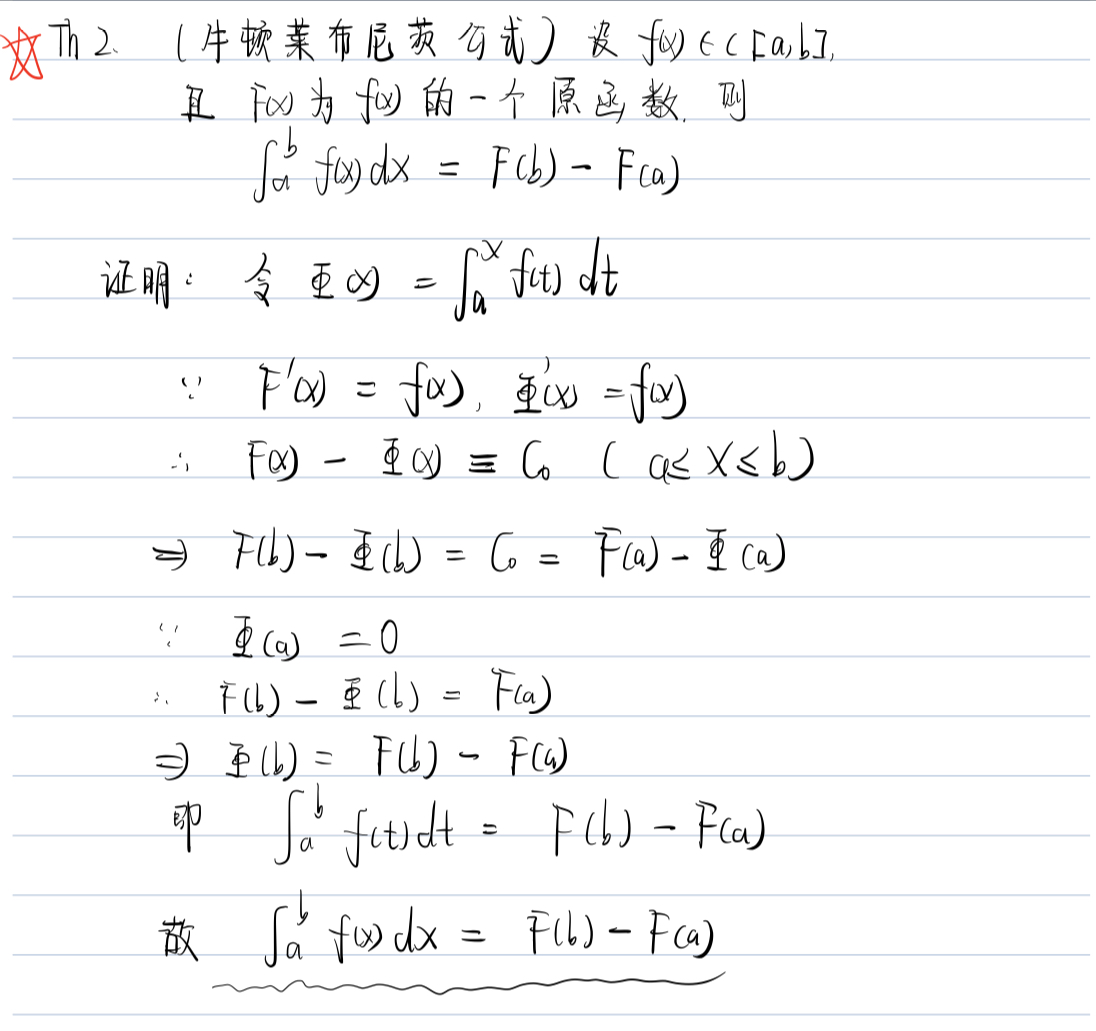 ☆ Th 2. (牛顿莱布尼茨公式) 设 f(x) ∈ C[a,b],
且 F(x) 为 f(x) 的一个原函数, 则
∫_a^b f(x) dx = F(b) - F(a)
证明: 令 Φ(x) = ∫_a^x f(t) dt
∵ F'(x) = f(x), Φ'(x) = f(x)
∴ F(x) - Φ(x) ≡ C₀ ( a ≤ x ≤ b )
⇒ F(b) - Φ(b) = C₀ = F(a) - Φ(a)
∵ Φ(a) = 0
∴ F(b) - Φ(b) = F(a)
⇒ Φ(b) = F(b) - F(a)
即 ∫_a^b f(t) dt = F(b) - F(a)
故 ∫_a^b f(x) dx = F(b) - F(a)